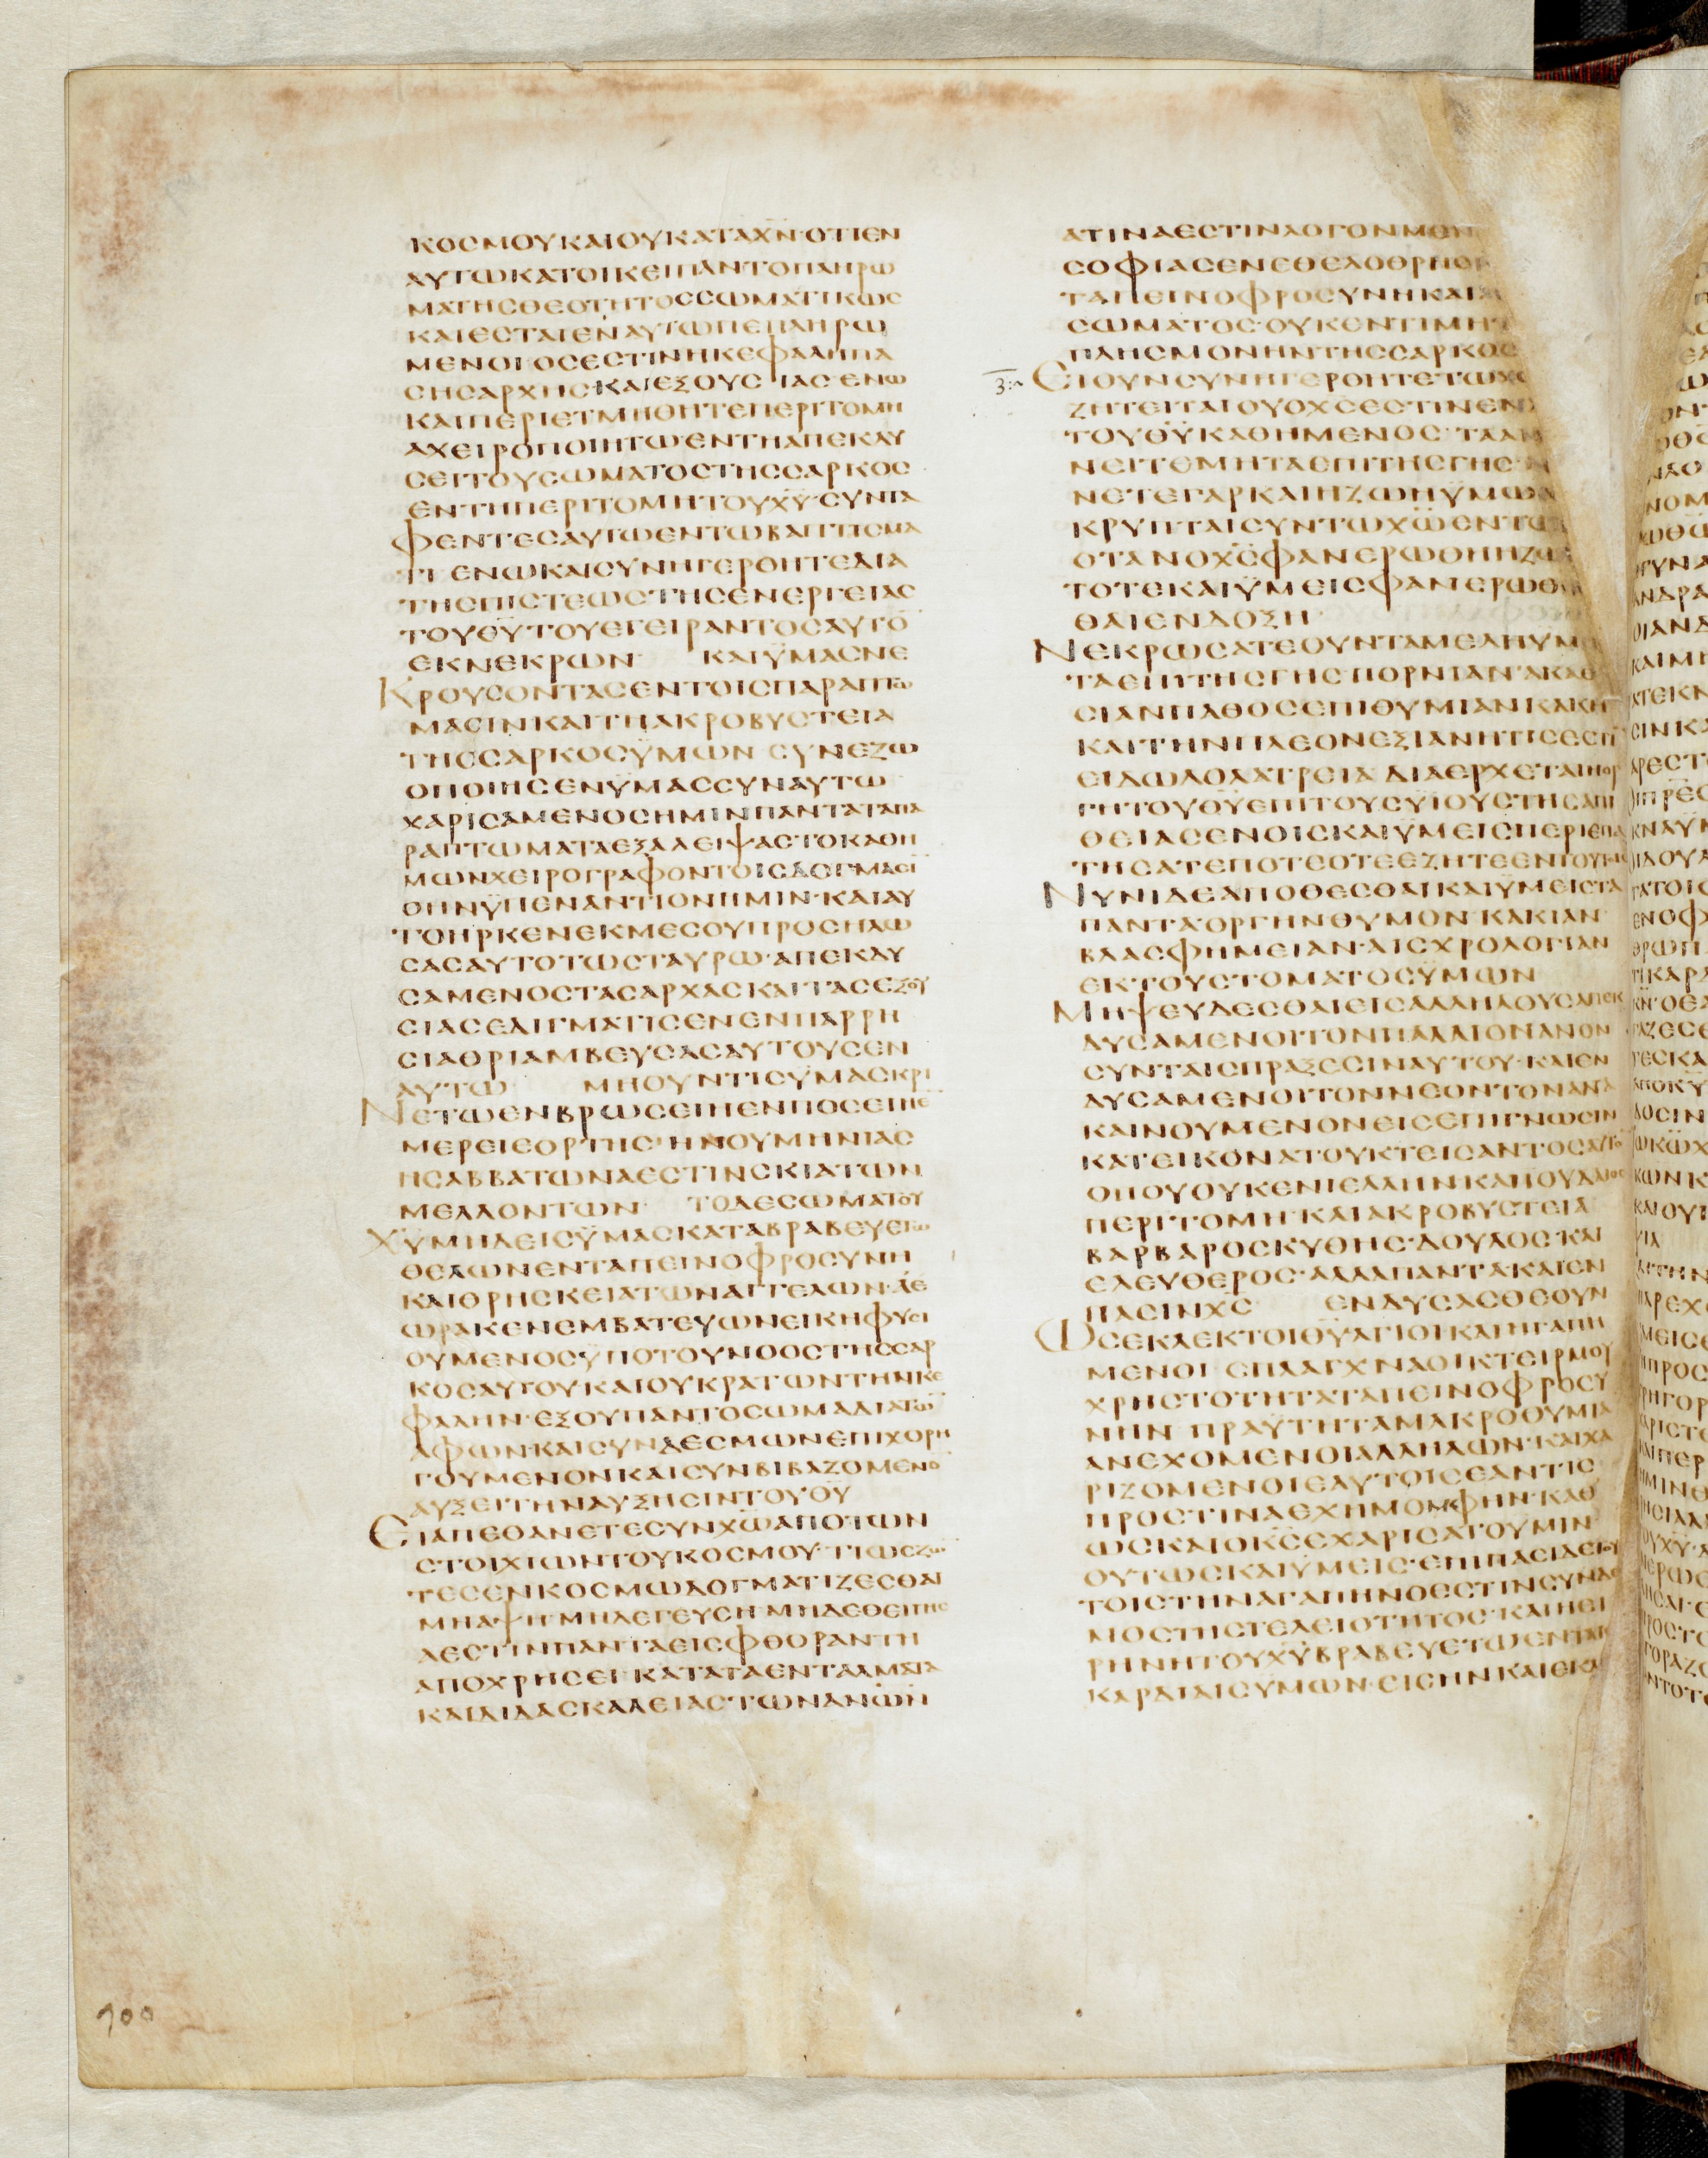 ΚΟΣΜΟΥΚΑΙΟΥΚΑΤΑΧΝ·ΟΤΙΕΝ
ΑΥΤΩΚΑΤΟΙΚΕΙΠΑΝΤΟΠΛΗΡΩ
ΜΑΤΗΣΘΕΟΤΗΤΟΣΣΩΜΑΤΙΚΩΣ
ΚΑΙΕΣΤΑΙΕΝΑΥΤΩΠΕΠΛΗΡΩ
ΜΕΝΟΙΟΣΕΣΤΙΝΗΚΕΦΑΛΗΠΑ
ΣΗΣΑΡΧΗΣΚΑΙΕΞΟΥΣΙΑΣ·ΕΝΩ
ΚΑΙΠΕΡΙΕΤΜΗΘΗΤΕΠΕΡΙΤΟΜΗ
ΑΧΕΙΡΟΠΟΙΗΤΩΕΝΤΗΑΠΕΚΔΥ
ΣΕΙΤΟΥΣΩΜΑΤΟΣΤΗΣΣΑΡΚΟΣ
ΕΝΤΗΠΕΡΙΤΟΜΗΤΟΥΧΥ·ΣΥΝΤΑ
ΦΕΝΤΕΣΑΥΤΩΕΝΤΩΒΑΠΤΙΣΜΑ
ΤΙΕΝΩΚΑΙΣΥΝΗΓΕΡΘΗΤΕΔΙΑ
ΤΗΣΠΙΣΤΕΩΣΤΗΣΕΝΕΡΓΕΙΑΣ
ΤΟΥΘΥΤΟΥΕΓΕΙΡΑΝΤΟΣΑΥΤΟ̄
ΕΚΝΕΚΡΩΝ ΚΑΙΫΜΑΣΝΕ
ΚΡΟΥΣΟΝΤΑΣΕΝΤΟΙΣΠΑΡΑΠΤΩ
ΜΑΣΙΝΚΑΙΤΗΑΚΡΟΒΥΣΤΕΙΑ
ΤΗΣΣΑΡΚΟΣΫΜΩΝΣΥΝΕΖΩ
ΟΠΟΙΗΣΕΝΥΜΑΣΣΥΝΑΥΤΩ
ΧΑΡΙΣΑΜΕΝΟΣΗΜΙΝΠΑΝΤΑΤΑΠΑ
ΡΑΠΤΩΜΑΤΑΕΞΑΛΕΙΨΑΣΤΟΚΑΘΗ
ΜΩΝΧΕΙΡΟΓΡΑΦΟΝΤΟΙΣΔΟΓΜΑΣΙ
ΟΗΝΫΠΕΝΑΝΤΙΟΝΗΜΙΝ·ΚΑΙΑΥ
ΤΟΗΡΚΕΝΕΚΜΕΣΟΥΠΡΟΣΗΛΩ
ΣΑΣΑΥΤΟΤΩΣΤΑΥΡΩ·ΑΠΕΚΔΥ
ΣΑΜΕΝΟΣΤΑΣΑΡΧΑΣΚΑΙΤΑΣΕΞΟΥ
ΣΙΑΣΕΔΙΓΜΑΤΙΣΕΝΕΝΠΑΡΡΗ
ΣΙΑΘΡΙΑΜΒΕΥΣΑΣΑΥΤΟΥΣΕΝ
ΑΥΤΩ ΜΗΟΥΝΤΙΣΥΜΑΣΚΡΙ
ΝΕΤΩΕΝΒΡΩΣΕΙΗΕΝΠΟΣΕΙΗΕ̄
ΜΕΡΕΙΕΟΡΤΗΣ·ΗΝΟΥΜΗΝΙΑΣ
ΗΣΑΒΒΑΤΩΝΑΕΣΤΙΝΣΚΙΑΤΩΝ
ΜΕΛΛΟΝΤΩΝ ΤΟΔΕΣΩΜΑΤΟΥ
ΧΥΜΗΔΕΙΣΫΜΑΣΚΑΤΑΒΡΑΒΕΥΕΤΩ
ΘΕΛΩΝΕΝΤΑΠΕΙΝΟΦΡΟΣΥΝΗ
ΚΑΙΘΡΗΣΚΕΙΑΤΩΝΑΓΓΕΛΩΝ·ΑΕ
ΩΡΑΚΕΝΕΜΒΑΤΕΥΩΝΕΙΚΗΦΥΣΙ
ΟΥΜΕΝΟΣΫΠΟΤΟΥΝΟΟΣΤΗΣΣΑΡ
ΚΟΣΑΥΤΟΥΚΑΙΟΥΚΡΑΤΩΝΤΗΝΚΕ
ΦΑΛΗΝ·ΕΞΟΥΠΑΝΤΟΣΩΜΑΔΙΑΤΩ̄
ΑΦΩΝ·ΚΑΙΣΥΝΔΕΣΜΩΝΕΠΙΧΟΡΗ
ΓΟΥΜΕΝΟΝΚΑΙΣΥΝΒΙΒΑΖΟΜΕΝΟ
ΑΥΞΕΙΤΗΝΑΥΞΗΣΙΝΤΟΥΘΥ
ΕΙΑΠΕΘΑΝΕΤΕΣΥΝΧΩΑΠΟΤΩΝ
ΣΤΟΙΧΙΩΝΤΟΥΚΟΣΜΟΥ·ΤΙΩΣΖΩ̄
ΤΕΣΕΝΚΟΣΜΩΔΟΓΜΑΤΙΖΕΣΘΑΙ
ΜΗΑΨΗΜΗΔΕΓΕΥΣΗΜΗΔΕΘΕΙΓΗΣ
ΑΕΣΤΙΝΠΑΝΤΑΕΙΣΦΘΟΡΑΝΤΗ
ΑΠΟΧΡΗΣΕΙ·ΚΑΤΑΤΑΕΝΤΑΛΜΑΤΑ
ΚΑΙΔΙΔΑΣΚΑΛΕΙΑΣΤΩΝΑΝΩΝ
ΑΤΙΝΑΕΣΤΙΝΛΟΓΟΝΜΕΝ
ΣΟΦΙΑΣΕΝΕΘΕΛΟΘΡΗΣΚ
ΤΑΠΕΙΝΟΦΡΟΣΥΝΗΚΑΙΑ
ΣΩΜΑΤΟΣ·ΟΥΚΕΝΤΙΜΗΤ
ΠΛΗΣΜΟΝΗΝΤΗΣΣΑΡΚΟΣ
ΕΙΟΥΝΣΥΝΗΓΕΡΘΗΤΕΤΩΧ
ΖΗΤΕΙΤΑΙΟΥΟΧΣΕΣΤΙΝΕΝ
ΤΟΥΘΥΚΑΘΗΜΕΝΟΣ·ΤΑΑΝ
ΝΕΙΤΕΜΗΤΑΕΠΙΤΗΣΓΗΣ
ΝΕΤΕΓΑΡΚΑΙΗΖΩΗΫΜΩΝ
ΚΡΥΠΤΑΙΣΥΝΤΩΧΩΕΝΤΩ
ΟΤΑΝΟΧΣΦΑΝΕΡΩΘΗΗΖΩ
ΤΟΤΕΚΑΙΫΜΕΙΣΦΑΝΕΡΩΘ
ΘΑΙΕΝΔΟΞΗ
ΝΕΚΡΩΣΑΤΕΟΥΝΤΑΜΕΛΗΥΜ
ΤΑΕΠΙΤΗΣΓΗΣΠΟΡΝΙΑΝ·ΑΚΑΘ
ΣΙΑΝΠΑΘΟΣΕΠΙΘΥΜΙΑΝΚΑΚΗ
ΚΑΙΤΗΝΠΛΕΟΝΕΞΙΑΝΗΤΙΣΕΣΤΙ
ΕΙΔΩΛΟΛΑΤΡΕΙΑΔΙΑΕΡΧΕΤΑΙΗΟΡ
ΓΗΤΟΥΘΥΕΠΙΤΟΥΣΥΪΟΥΣΤΗΣΑΠΙ
ΘΕΙΑΣΕΝΟΙΣΚΑΙΫΜΕΙΣΠΕΡΙΕΠΑ
ΤΗΣΑΤΕΠΟΤΕΟΤΕΕΖΗΤΕΕΝΤΟΥΤΟΙΣ
ΝΥΝΙΔΕΑΠΟΘΕΣΘΑΙΚΑΙΫΜΕΙΣΤΑ
ΠΑΝΤΑ·ΟΡΓΗΝΘΥΜΟΝ·ΚΑΚΙΑΝ
ΒΛΑΣΦΗΜΕΙΑΝ·ΑΙΣΧΡΟΛΟΓΙΑΝ
ΕΚΤΟΥΣΤΟΜΑΤΟΣΫΜΩΝ
ΜΗΨΕΥΔΕΣΘΑΙΕΙΣΑΛΛΗΛΟΥΣΑΠΕΚ
ΔΥΣΑΜΕΝΟΙΤΟΝΠΑΛΑΙΟΝΑΝΟΝ
ΣΥΝΤΑΙΣΠΡΑΞΕΣΙΝΑΥΤΟΥ·ΚΑΙΕΝ
ΔΥΣΑΜΕΝΟΙΤΟΝΝΕΟΝΤΟΝΑΝΑ
ΚΑΙΝΟΥΜΕΝΟΝΕΙΣΕΠΙΓΝΩΣΙΝ
ΚΑΤΕΙΚΟΝΑΤΟΥΚΤΕΙΣΑΝΤΟΣΑΥΤΟ̄
ΟΠΟΥΟΥΚΕΝΙΕΛΛΗΝΚΑΙΙΟΥΔΑΙΟΣ
ΠΕΡΙΤΟΜΗ·ΚΑΙΑΚΡΟΒΥΣΤΕΙΑ
ΒΑΡΒΑΡΟΣΚΥΘΗΣ·ΔΟΥΛΟΣ·ΚΑΙ
ΕΛΕΥΘΕΡΟΣ·ΑΛΛΑΠΑΝΤΑΚΑΙΕΝ
ΠΑΣΙΝΧΣ ΕΝΔΥΣΑΣΘΕΟΥΝ
ΩΣΕΚΛΕΚΤΟΙΘΥΑΓΙΟΙΚΑΙΗΓΑΠΗ
ΜΕΝΟΙ·ΣΠΛΑΓΧΝΑΟΙΚΤΕΙΡΜΟΥ
ΧΡΗΣΤΟΤΗΤΑΤΑΠΕΙΝΟΦΡΟΣΥ
ΝΗΝ ΠΡΑΫΤΗΤΑΜΑΚΡΟΘΥΜΙΑ
ΑΝΕΧΟΜΕΝΟΙΑΛΛΗΛΩΝ·ΚΑΙΧΑ
ΡΙΖΟΜΕΝΟΙΕΑΥΤΟΙΣΕΑΝΤΙΣ
ΠΡΟΣΤΙΝΑΕΧΗΜΟΜΦΗΝ·ΚΑΘ
ΩΣΚΑΙΟΚΣΕΧΑΡΙΣΑΤΟΥΜΙΝ
ΟΥΤΩΣΚΑΙΫΜΕΙΣ·ΕΠΙΠΑΣΙΔΕΤΟΥ
ΤΟΙΣΤΗΝΑΓΑΠΗΝΟΕΣΤΙΝΣΥΝΔΕ
ΜΟΣΤΗΣΤΕΛΕΙΟΤΗΤΟΣ·ΚΑΙΗΕΙ
ΡΗΝΗΤΟΥΧΥΒΡΑΒΕΥΕΤΩΕΝΤΑΙΣ
ΚΑΡΔΙΑΙΣΥΜΩΝ·ΕΙΣΗΝΚΑΙΕΚΛ
100